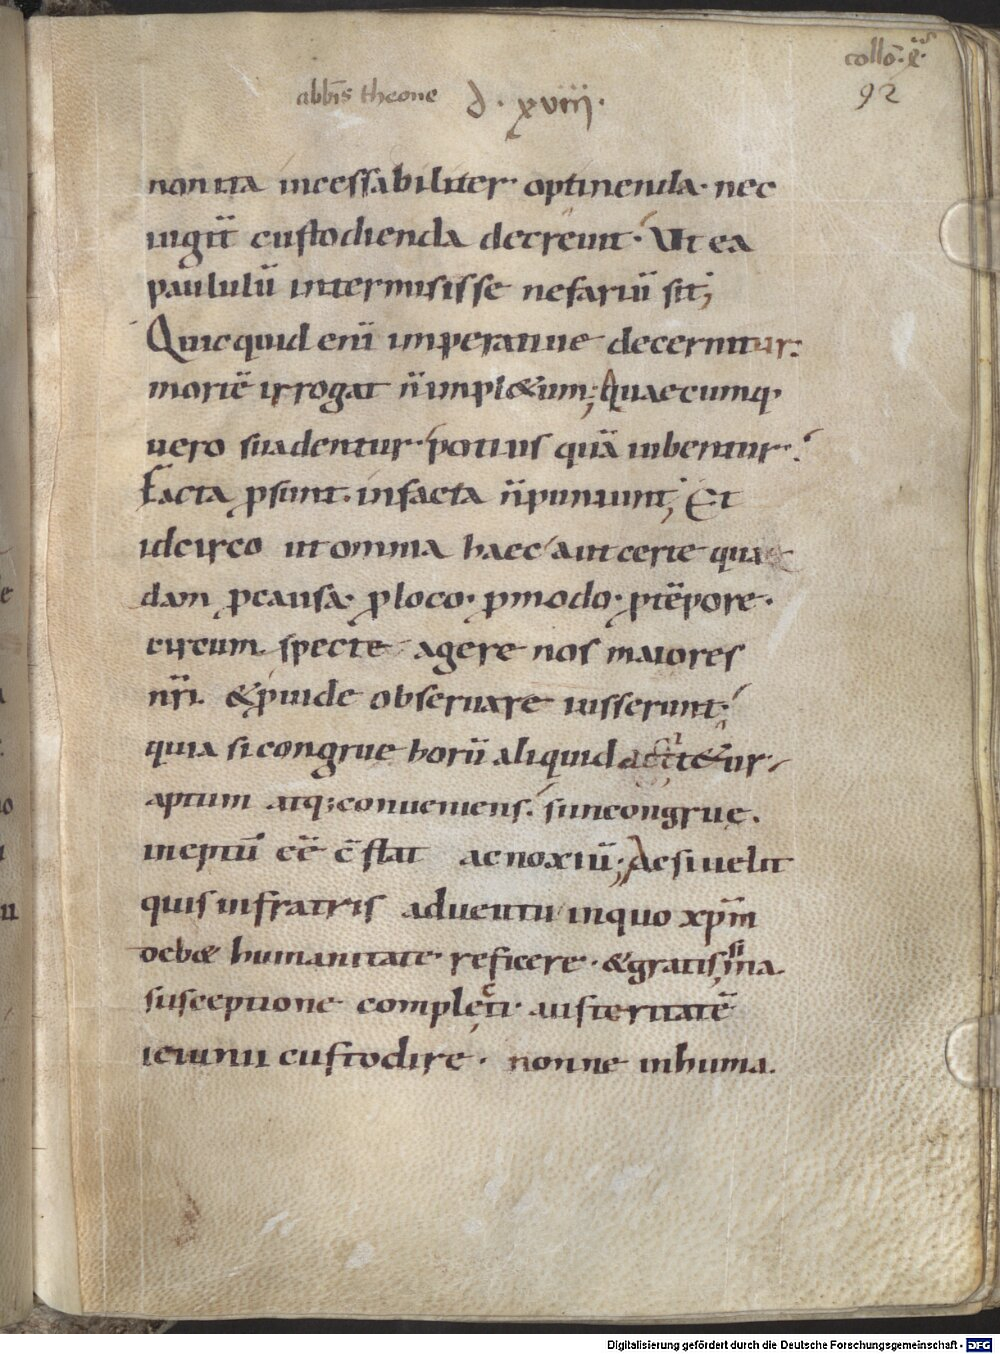 collō·ē·
abb̄is theone d·xviiij·
92
non ita incessabiliter· optinenda· nec
iugit̄ custodienda decreuit· Ut ea
paululū intermisisse nefariū sit;
Quicquid eni imperatiue decernitur:
mortē irrogat n̄ impl&um; Quaecumq;
uero suadentur· potius quā iubentur·
Facta ꝓsunt· infacta n̄ puniunt; Et
idcirco ut omnia haec aut certe quae
dam ꝓ causa· ꝓ loco· ꝓ modo· ꝓ tēpore·
circum specte agere nos maiores
nr̄i· & ꝓuide obseruare iusserunt;
quia si congrue horū aliquid tēur·
aptum atq; conueniens· si incongrue·
ineptū eē c̄stat ac noxiū; Ac si uelit
quis in fratris aduentu in quo xp̄m
deb& humanitate reficere· & gratissima
susceptione complecti· austeritatē
ieiunii custodire· nonne inhuma·
Digitalisierung gefördert durch die Deutsche Forschungsgemeinschaft - DFG